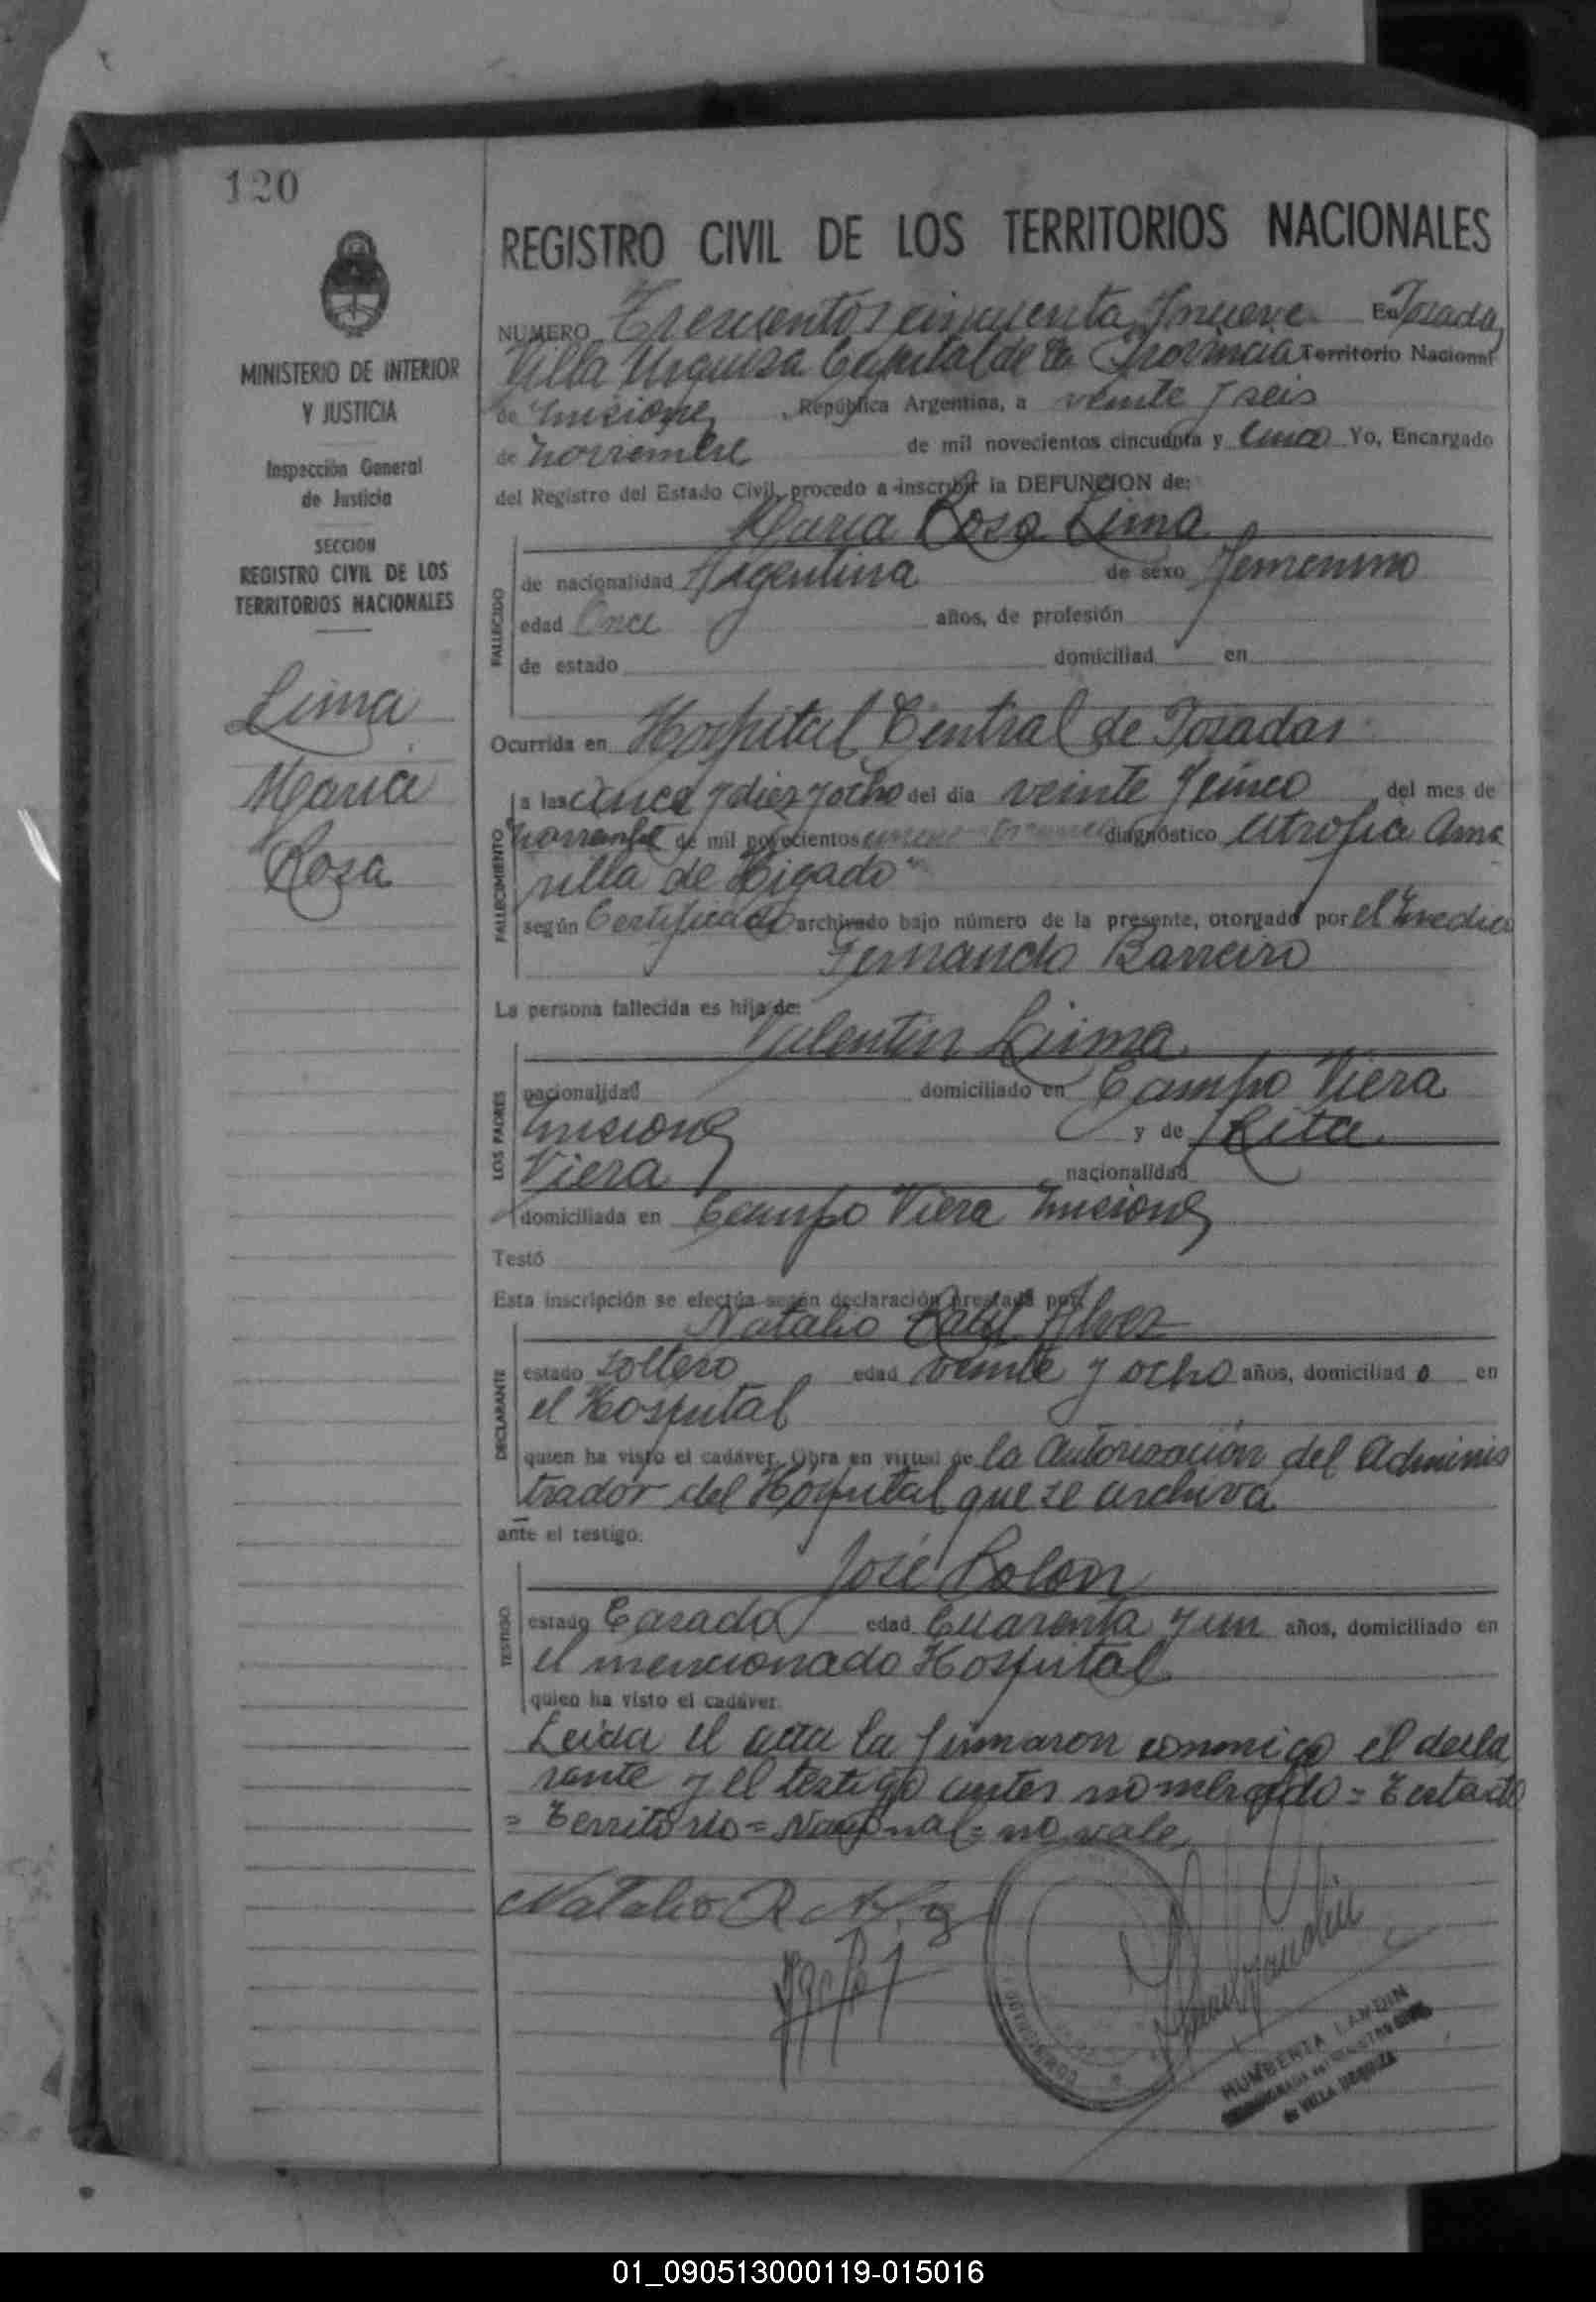 120
MINISTERIO DE INTERIOR
Y JUSTICIA
Inspección General
de Justicia
SECCION
REGISTRO CIVIL DE LOS
TERRITORIOS NACIONALES
Lima
Maria
Rosa
REGISTRO CIVIL DE LOS TERRITORIOS NACIONALES
NUMERO Trescientos cincuenta y nueve En Posadas
Villa Urquiza Capital de la Provincia Territorio Nacional
de Misiones, República Argentina, a veinte y seis
de Noviembre de mil novecientos cincuenta y cinco Yo, Encargado
del Registro del Estado Civil, procedo a inscribir la DEFUNCION de:
Maria Rosa Lima
FALLECIDO
de nacionalidad Argentina de sexo Femenino
edad Once años, de profesión
de estado domiciliad en
Ocurrida en Hospital Central de Posadas
FALLECIMIENTO
a las cinco y diez y ocho del dia veinte y cinco del mes de
Noviembre de mil novecientos diagnóstico Atrofia Ama
rilla de Higado"
según Certificado archivado bajo número de la presente, otorgado por el Medico
Fernando Barreiro
La persona fallecida es hija de:
Valentin Lima
LOS PADRES
nacionalidad domiciliado en Campo Viera
Misiones y de Rita
Viera nacionalidad
domiciliada en Campo Viera Misiones
Testó
Esta inscripción se efectúa según declaración prestada por:
Natalio Alvez
DECLARANTE
estado soltero edad veinte y ocho años, domiciliad o en
el Hospital
quien ha visto el cadáver. Obra en virtud de la autorización del Adminis
trador del Hospital que se archiva
ante el testigo:
José Rolon
TESTIGO
estado Casado edad Cuarenta y un años, domiciliado en
el mencionado Hospital
quien ha visto el cadáver.
Leida el acta la firmaron conmigo el decla
rante y el testigo antes nombrado = Testado
= Territorio = Nacional = no vale
Natalio R
HUMBERTA LANDIN
de VILLA URQUIZA
01_090513000119-015016